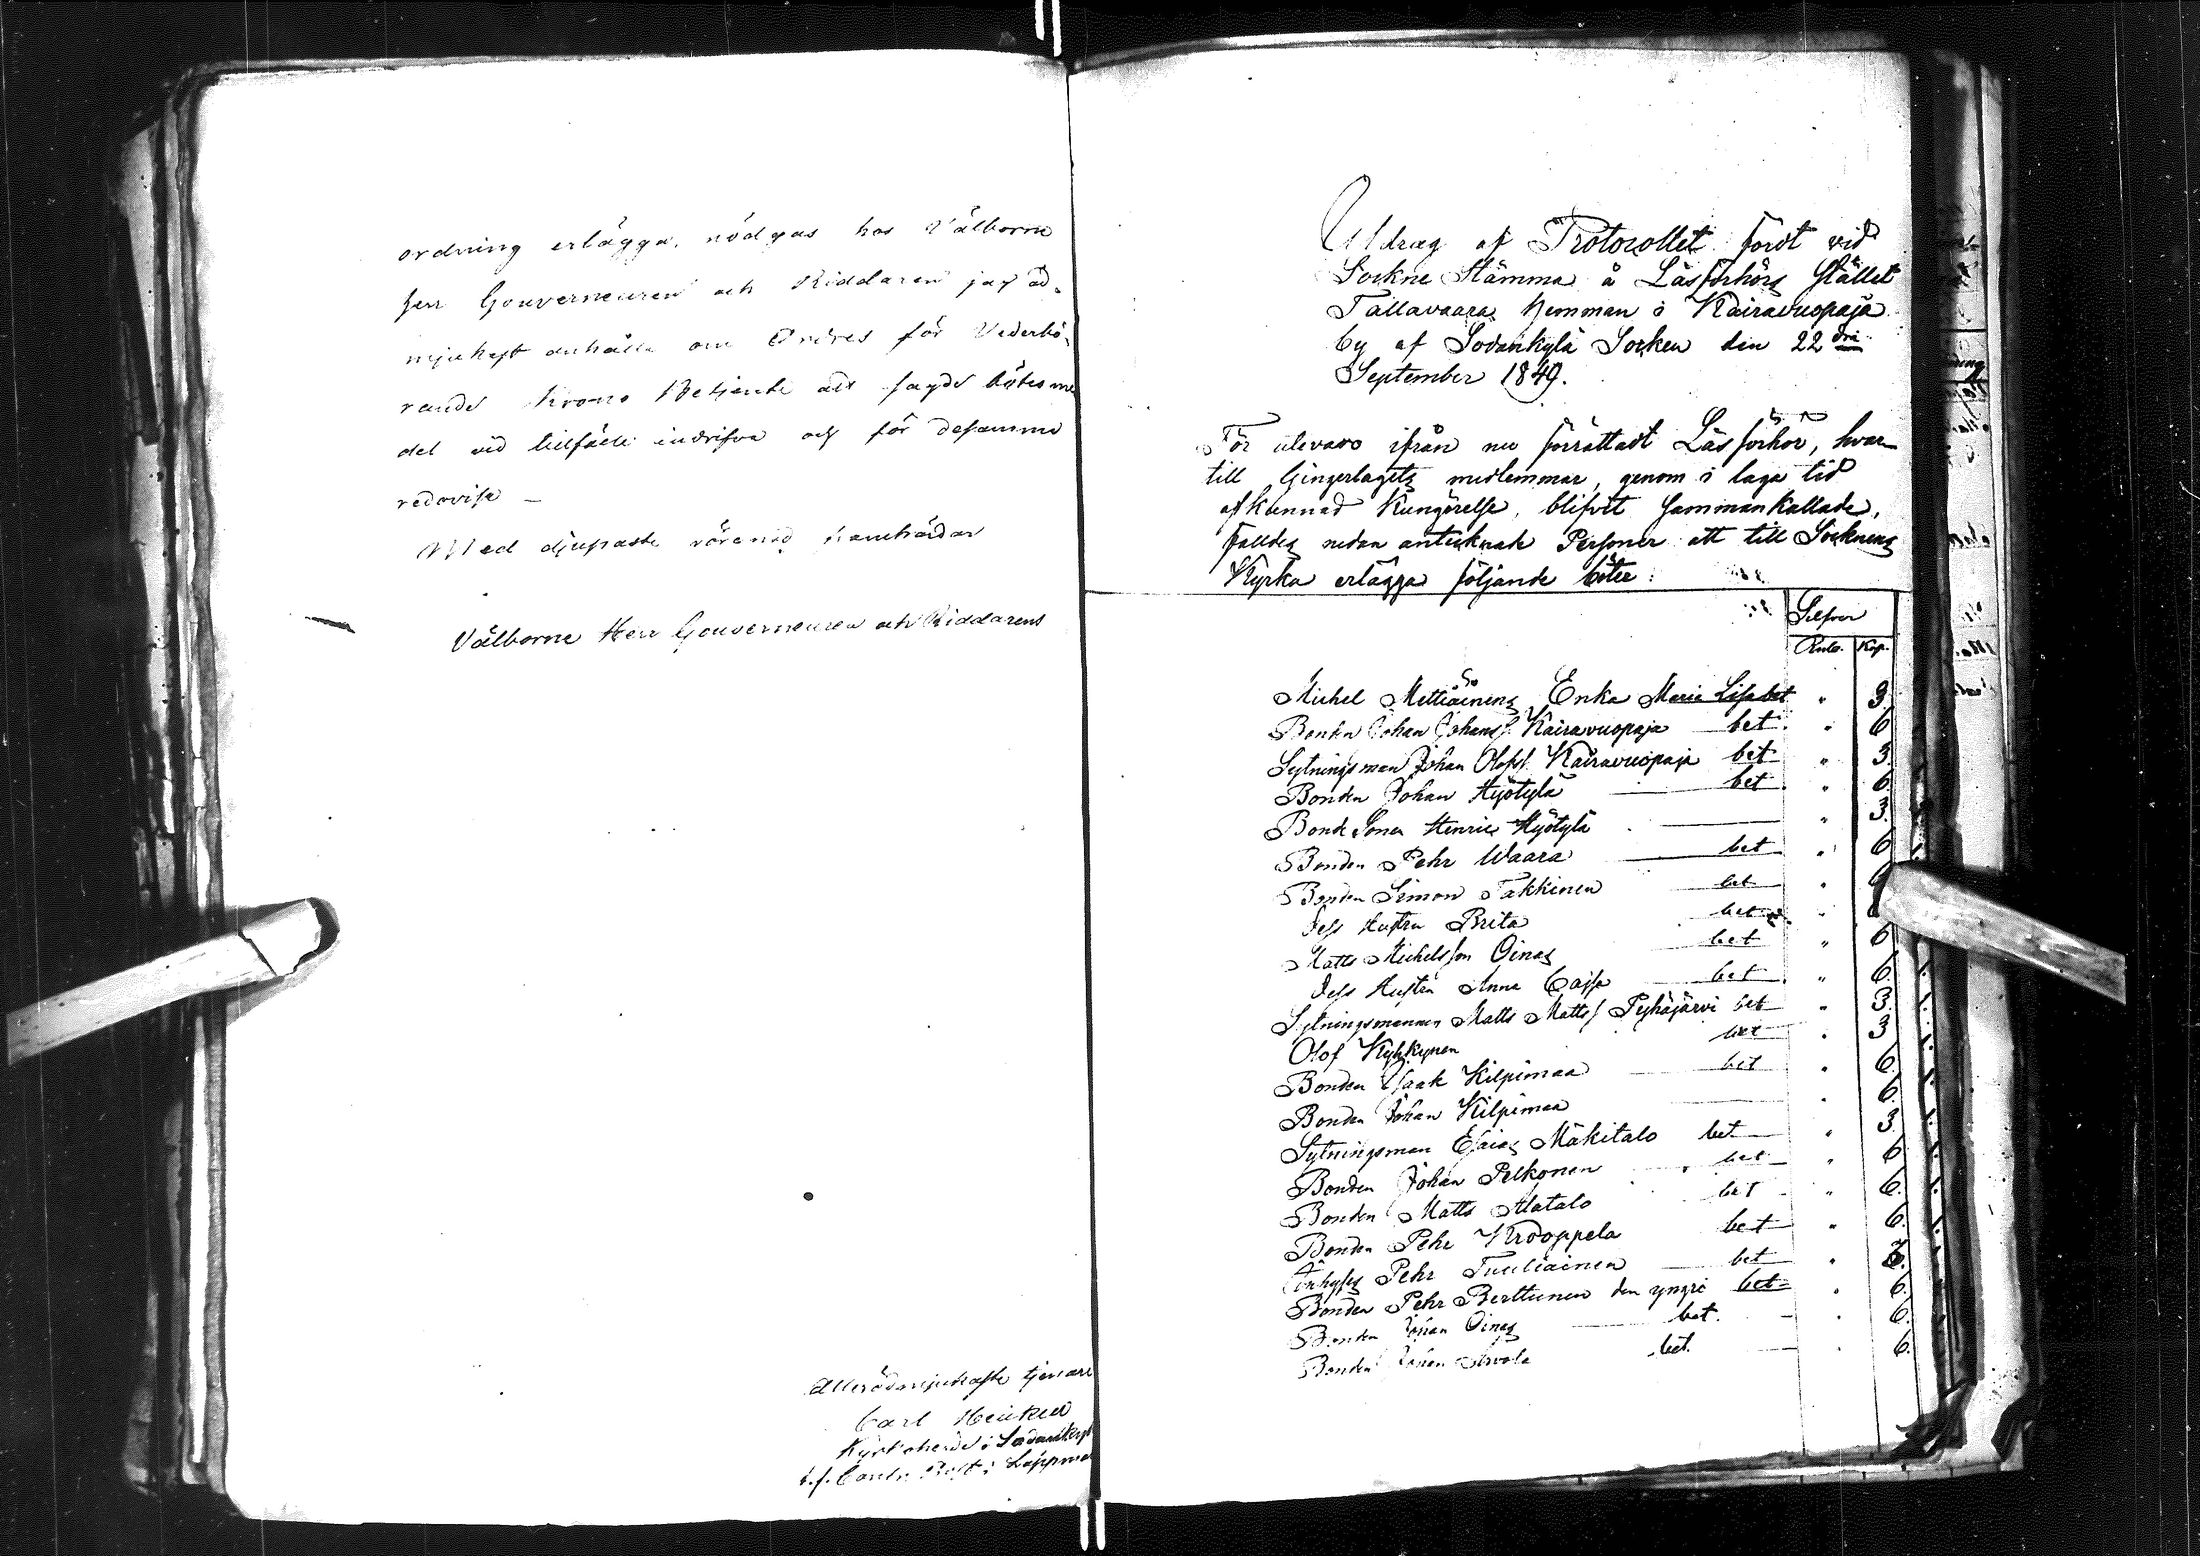 ordning erlägga, nödgas hos Välborne
Herr Gouverneuren och Riddaren jag öd-
mjukast anhålla om Ordres för Vederbö-
rande Krono Betjente att sagde bötesme
del vid tillfälle indrifva och för desamma
redovisa –
Med djupaste vördnad framhärdar
Välborne Herr Gouverneuren och Riddarens
Allerödmjukaste tjenare
Carl Heikel
Kyrkoherde i Sodankyl
t.f. Contr. Prost i Lappmar
Utdrag af Protocollet fördt vid
Sockne Stämma å Läsförhörs Stället
Tallavaara Hemman i Kairavuopaja
by af Sodankylä Socken den 22 dra
September 1849.
För utevaro ifrån nu förrättadt Läsförhör, hvar
till Gingerlagets medlemmar, genom i laga tid
afkunnad Kungörelse, blifvit sammankallade,
fälldes nedan antecknade Personer att till Socknens
Kyrka erlägga följande böter:
Silfver
Rub. Kop.
Michel Mettiäinens Enka Maria Lisa bet " 3
Bonden Johan Johanss. Kairavuopaja bet " 6
Sytningsman Johan Olofss. Kairavuopaja bet " 3.
Bonden Johan Hyötylä bet " 6
Bonde Sonen Henric Hyötylä " 3.
Bonden Pehr Waara bet " 6
Bonden Simon Takkinen bet "
Dess Hustru Brita bet "
Matts Michelsson Oinas bet " 6
Dess Hustru Anna Cajsa bet " 6.
Sytningsmannen Matts Matts/ Pyhäjärvi bet " 3.
Olof Kyhkynen bet " 3
Bonden Isaak Kilpimaa bet " 6.
Bonden Johan Kilpimaa " 6.
Sytningsman Esaias Mäkitalo bet " 3.
Bonden Johan Pelkonen bet " 6
Bonden Matts Alatalo bet " 6.
Bonden Pehr Krooppela bet " 6.
Inhyses Pehr Tuuliainen bet " 3.
Bonden Pehr Berttunen den yngre bet " 6.
Bonden Johan Oinas bet. " 6.
Bonden Johan Arvola bet. " 6.